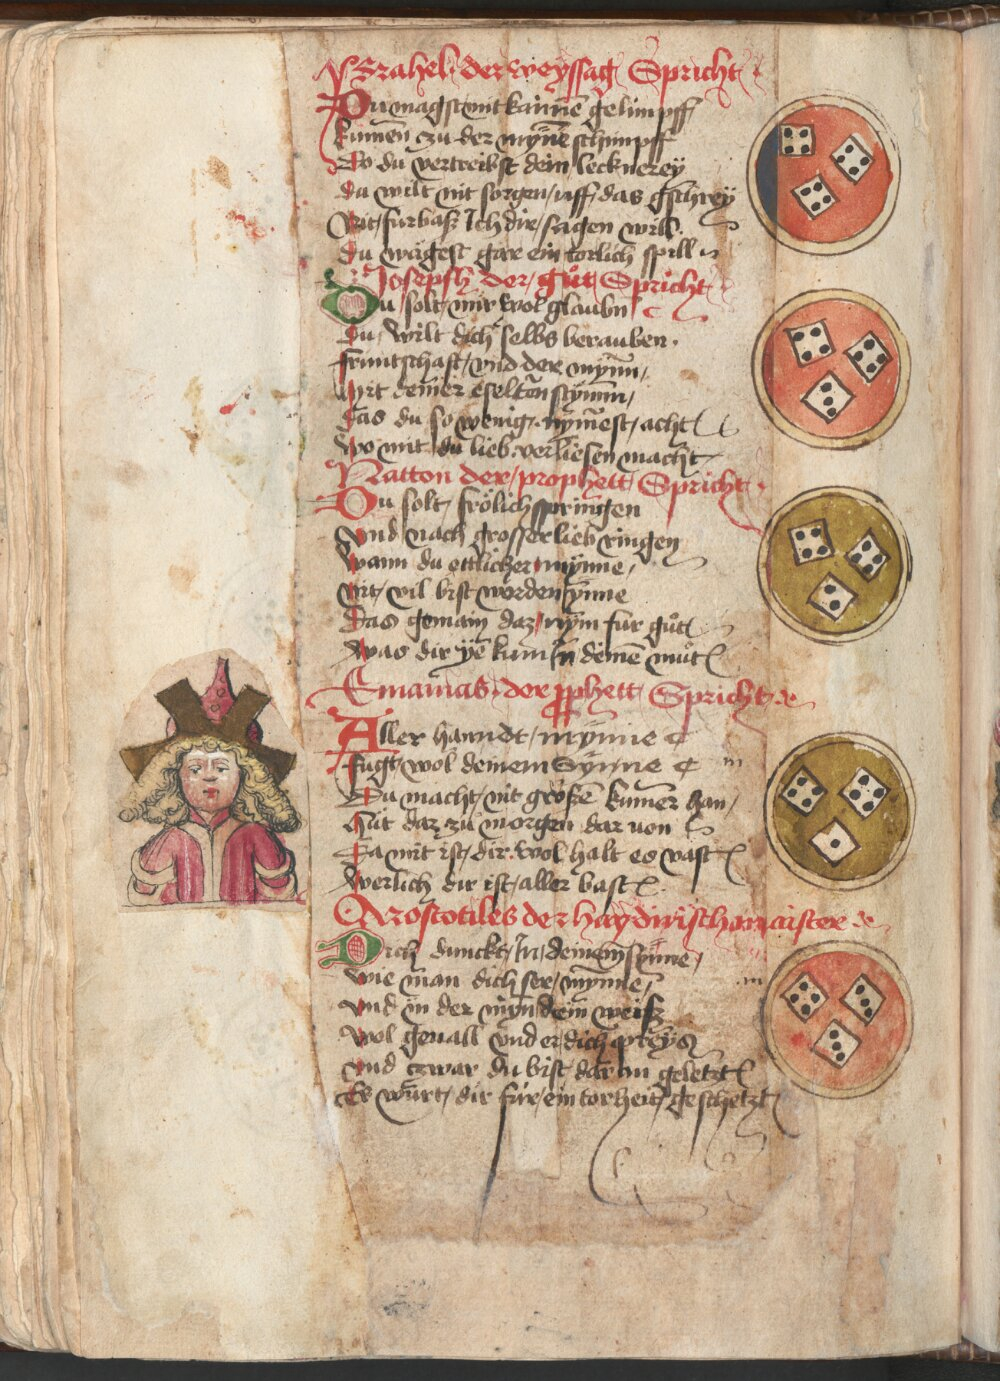 Israhel der weyssag Spricht
Du magst mit kainne gelimpff
kumen zu der mÿne schimpff
So du vertreibst dein lecknereÿ
du wilt mit sorgen uff das gschreÿ
Nit furbas Ich dir sagen will
du wagest gar ein torlich spill
Joseph der gůt Spricht
Du solt mir wol glaubn
Du wilt dich selbs berauben
fruntschaft vnd der mÿnn
mit deiner eselton stÿmm
das du so wenig nÿmest acht
wo mit du lieb verliesen macht
Natton der prophett Spricht
Du solt frölich springen
vnd nach grosser lieb ringen
wann du ettlicher mÿnne
nit vil bist worden ÿnne
Das gemain daz nÿm fur gůt
was dir ÿe kum Jn deinē můt
Emanias der prophett Spricht
Aller hanndt mÿnne
fugt wol deinem Sÿnne
Du macht nit großē kumer han
hüt daz zů morgen dar von
Da mit ist dir wol halt es vast
werlich dir ist aller bast
Arostotiles der haydinisch maister
Dich dunckt Jn deinem sÿnne
wie man dich ser mÿnne
vnd in der mÿn dein weiß
wol geuall vnd er dich preÿs
vnd czwar du bist dar an geletzt
Es wurt dir fúr ein torheit geschetzt